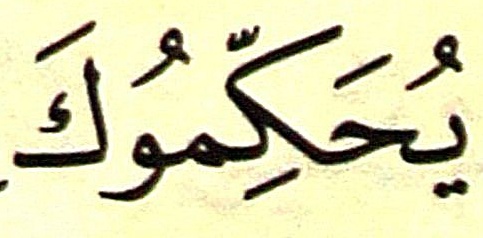 يُحَكِّمُوكَ